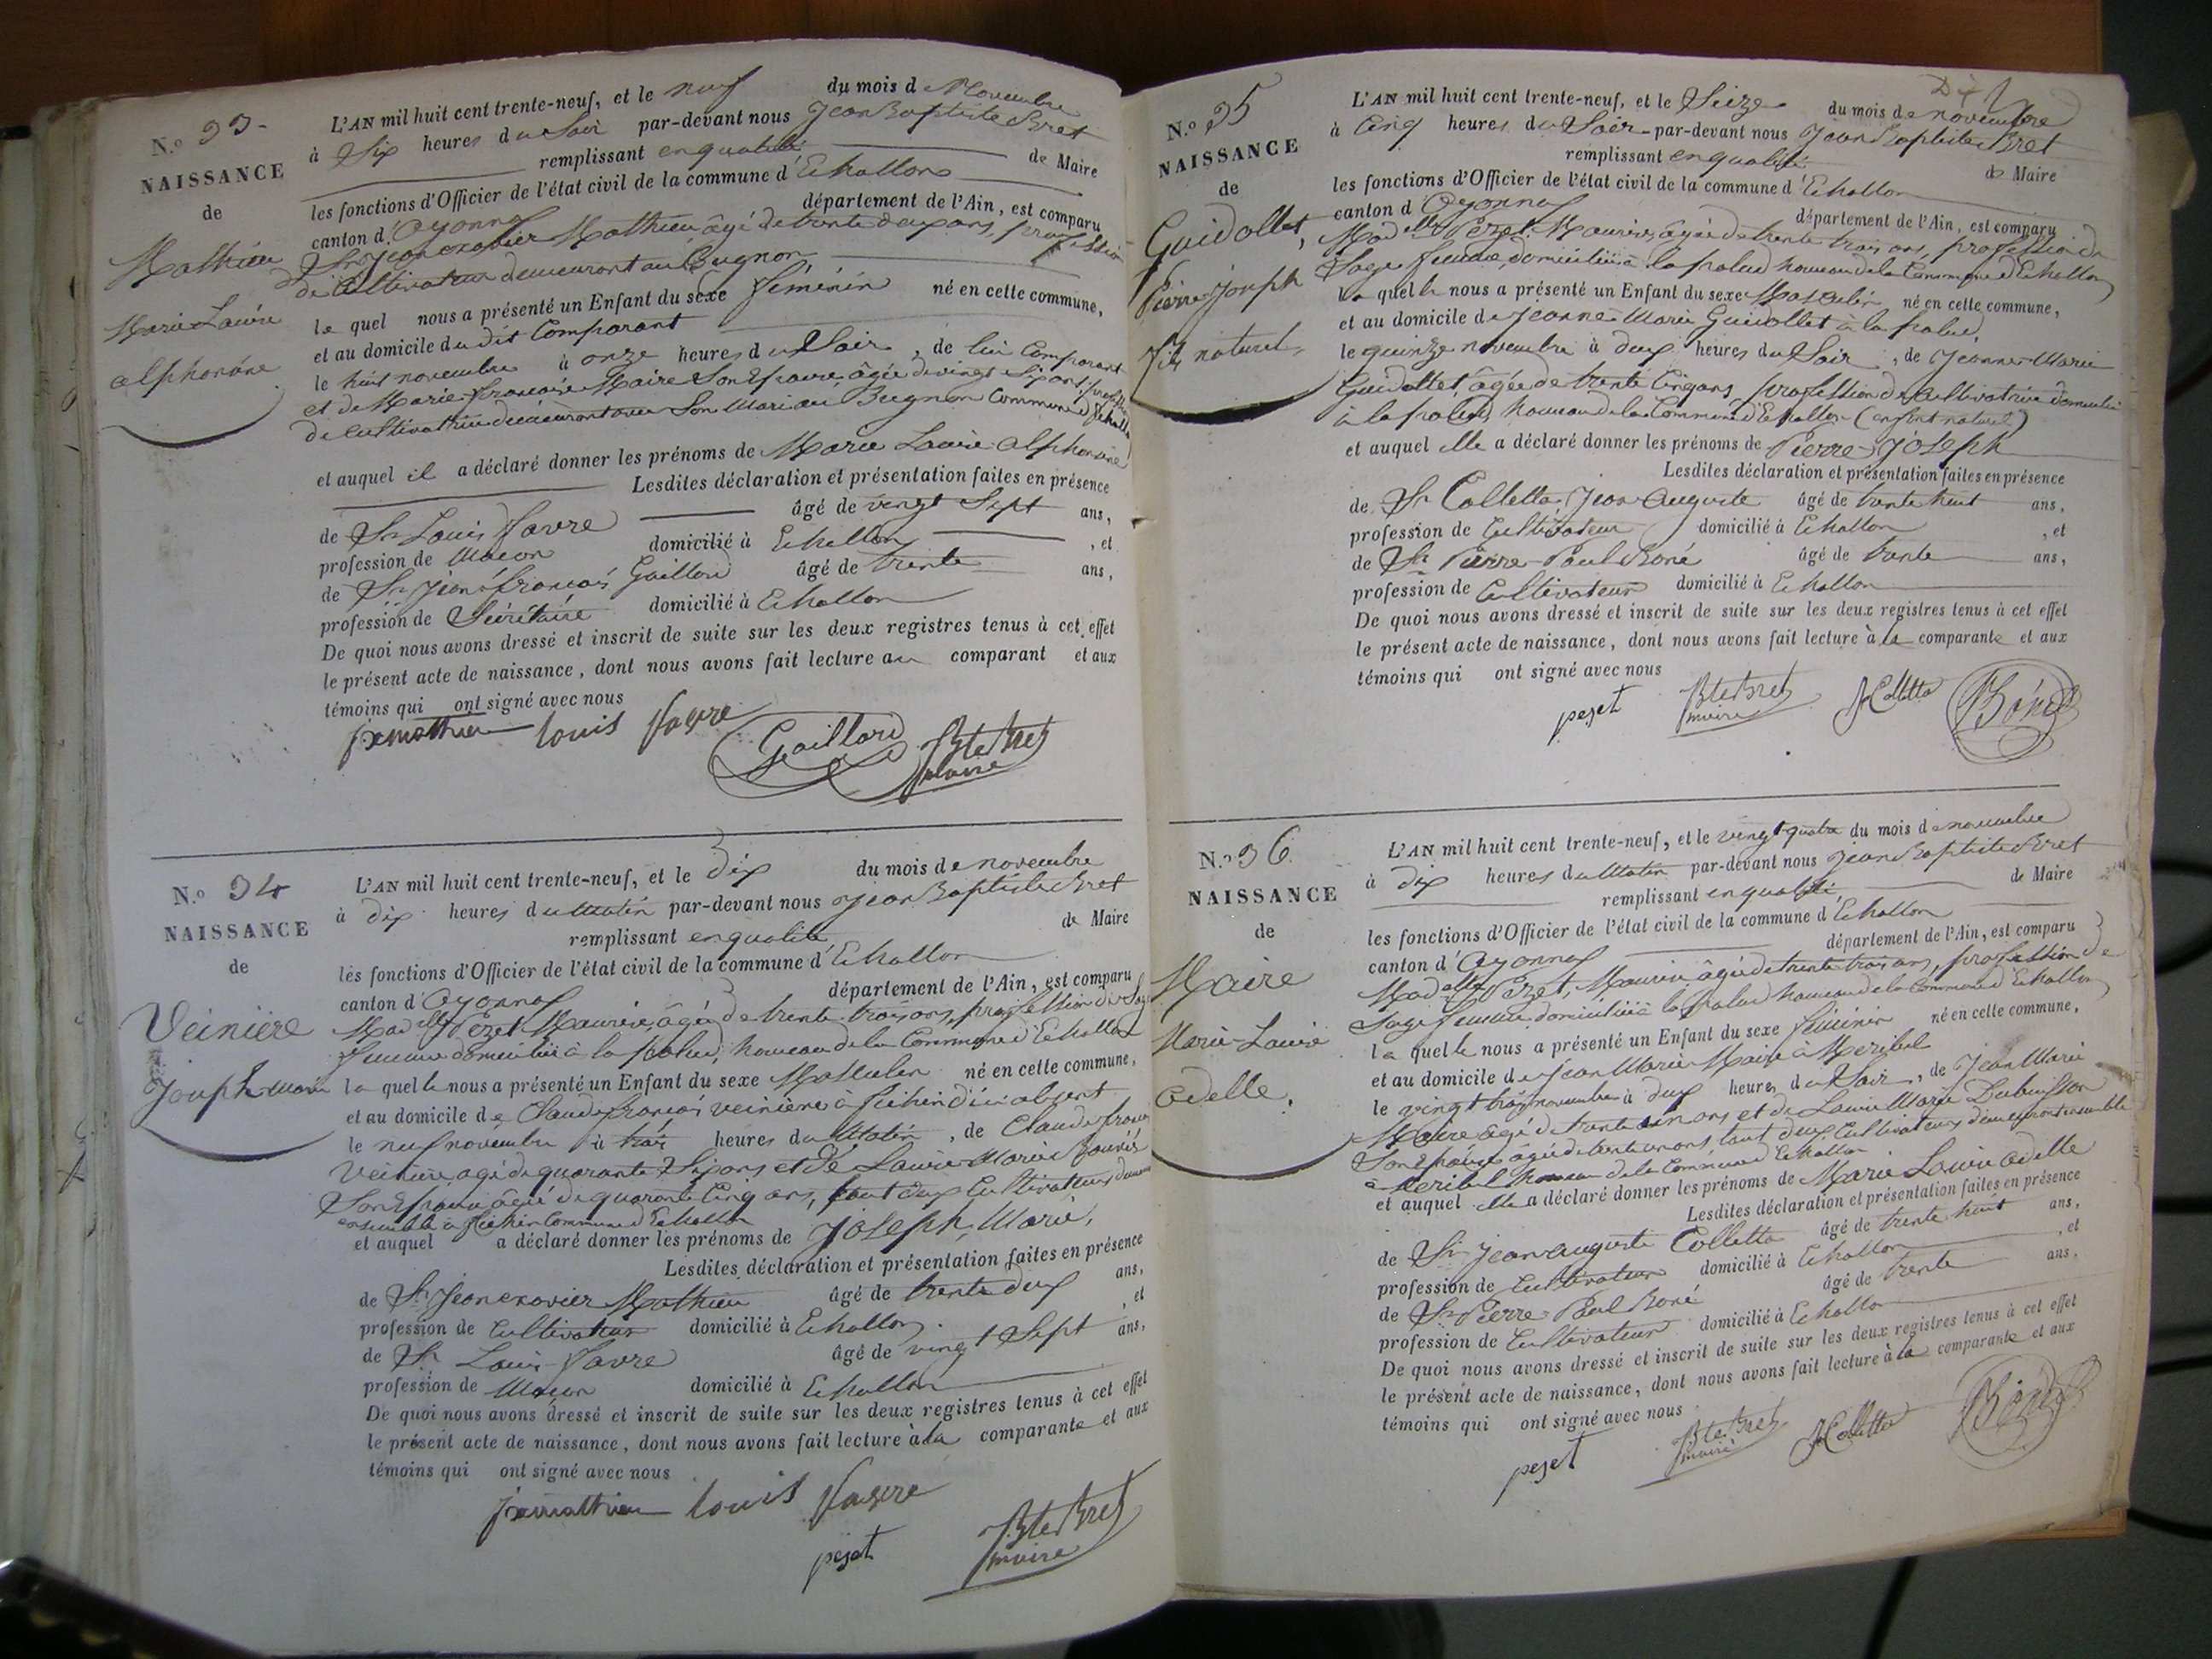 N.o 33
NAISSANCE
de
Mathieu
Marie Louise
alphonsine
L'AN mil huit cent trente-neuf, et le neuf du mois de Novembre
à Six heures du Soir par-devant nous Jean Baptiste Bret
remplissant en qualité de Maire
les fonctions d'Officier de l'état civil de la commune d'Echallon
canton d'Oyonnax département de l'Ain, est comparu
Sr Jean exavier Mathieu, âgé de trente deux ans, profession
de Cultivateur demeurant au Bugnon
le quel nous a présenté un Enfant du sexe féminin né en cette commune,
et au domicile du dit Comparant
le huit novembre à onze heures du Soir, de lui Comparant
et de Marie françoise Maire Son Epouse, âgée de vingt Six ans, profession
de cultivatrice demeurant avec Son Mari au Bugnon Commune d'Echallon
et auquel il a déclaré donner les prénoms de Marie Louise alphonsine
Lesdites déclaration et présentation faites en présence
de Sr Louis favre âgé de vingt Sept ans,
profession de Maçon domicilié à Echallon, et
de Sr Jean françois Gaillard âgé de trente ans,
profession de Sécrétaire domicilié à Echallon
De quoi nous avons dressé et inscrit de suite sur les deux registres tenus à cet effet
le présent acte de naissance, dont nous avons fait lecture au comparant et aux
témoins qui ont signé avec nous
jxmathieu louis favre Gaillard JBte Bret
maire
N.o 34
NAISSANCE
de
Veinière
Joseph Marie
L'AN mil huit cent trente-neuf, et le dix du mois de novembre
à dix heures du Matin par-devant nous Jean Baptiste Bret
remplissant en qualité de Maire
les fonctions d'Officier de l'état civil de la commune d'Echallon
canton d'Oyonnax département de l'Ain, est comparu
Madelle Pezet Maurise, âgée de trente trois ans, profession de Sage
femme domiciliée à la palud, hameau de la Commune d'Echallon
la quelle nous a présenté un Enfant du sexe Masculin né en cette commune,
et au domicile de Claude françois Veinière
le neuf novembre à trois heures du Matin, de Claude françois
Veinière âgé de quarante Six ans et de Louise Marie
Son Epouse âgée de quarante Cinq ans, tout deux Cultivateurs
ensemble à Commune d'Echallon
et auquel a déclaré donner les prénoms de Joseph, Marie,
Lesdites déclaration et présentation faites en présence
de Sr Jean exavier Mathieu âgé de trente deux ans,
profession de Cultivateur domicilié à Echallon, et
de Sr Louis favre âgé de vingt Sept ans,
profession de Maçon domicilié à Echallon
De quoi nous avons dressé et inscrit de suite sur les deux registres tenus à cet effet
le présent acte de naissance, dont nous avons fait lecture à la comparante et aux
témoins qui ont signé avec nous
jxmathieu louis favre
pezet JBte Bret
maire
N.o 35
NAISSANCE
de
Guidollet,
Pierre Joseph
fils naturel
L'AN mil huit cent trente-neuf, et le Seize du mois de novembre
à Cinq heures du Soir par-devant nous Jean Baptiste Bret
remplissant en qualité de Maire
les fonctions d'Officier de l'état civil de la commune d'Echallon
canton d'Oyonnax département de l'Ain, est comparu
Madelle Pezet Maurise, âgée de trente trois ans, profession de
Sage femme, domiciliée à la palud hameau de la Commune d'Echallon
la quelle nous a présenté un Enfant du sexe Masculin, né en cette commune,
et au domicile de Jeanne Marie Guidollet à la palud,
le quinze novembre à deux heures du Soir, de Jeanne Marie
Guidollet, âgée de trente Cinq ans, profession de Cultivatrice domiciliée
à la palud, hameau de la Commune d'Echallon (enfant naturel)
et auquel elle a déclaré donner les prénoms de Pierre Joseph
Lesdites déclaration et présentation faites en présence
de Sr Colletta, Jean Auguste âgé de trente huit ans,
profession de Cultivateur domicilié à Echallon, et
de Sr Pierre Paul Boné âgé de trente ans,
profession de Cultivateur domicilié à Echallon
De quoi nous avons dressé et inscrit de suite sur les deux registres tenus à cet effet
le présent acte de naissance, dont nous avons fait lecture à la comparante et aux
témoins qui ont signé avec nous
pezet JBte Bret Colletta Boné
maire
N.o 36
NAISSANCE
de
Maire
Marie Louise
adelle.
L'AN mil huit cent trente-neuf, et le vingt quatre du mois de novembre
à dix heures du Matin par-devant nous Jean Baptiste Bret
remplissant en qualité de Maire
les fonctions d'Officier de l'état civil de la commune d'Echallon
canton d'Oyonnax département de l'Ain, est comparu
Madelle Pezet, Maurise âgée de trente trois ans, profession de
Sage femme domiciliée à la palud hameau de la Commune d'Echallon
la quelle nous a présenté un Enfant du sexe féminin né en cette commune,
et au domicile de Jean Marie Maire à Meribel
le vingt trois novembre à deux heures du Soir, de Jean Marie
Maire âgé de trente ans et de Louise Marie Dubuisson
Son Epouse âgée de trente un ans, tout deux Cultivateurs demeurant ensemble
à Meribel hameau de la Commune d'Echallon
et auquel elle a déclaré donner les prénoms de Marie Louise adelle
Lesdites déclaration et présentation faites en présence
de Sr Jean auguste Colletta âgé de trente huit ans,
profession de Cultivateur domicilié à Echallon, et
de Sr Pierre Paul Boné âgé de trente ans,
profession de Cultivateur domicilié à Echallon
De quoi nous avons dressé et inscrit de suite sur les deux registres tenus à cet effet
le présent acte de naissance, dont nous avons fait lecture à la comparante et aux
témoins qui ont signé avec nous
pezet JBte Bret Colletta Boné
maire